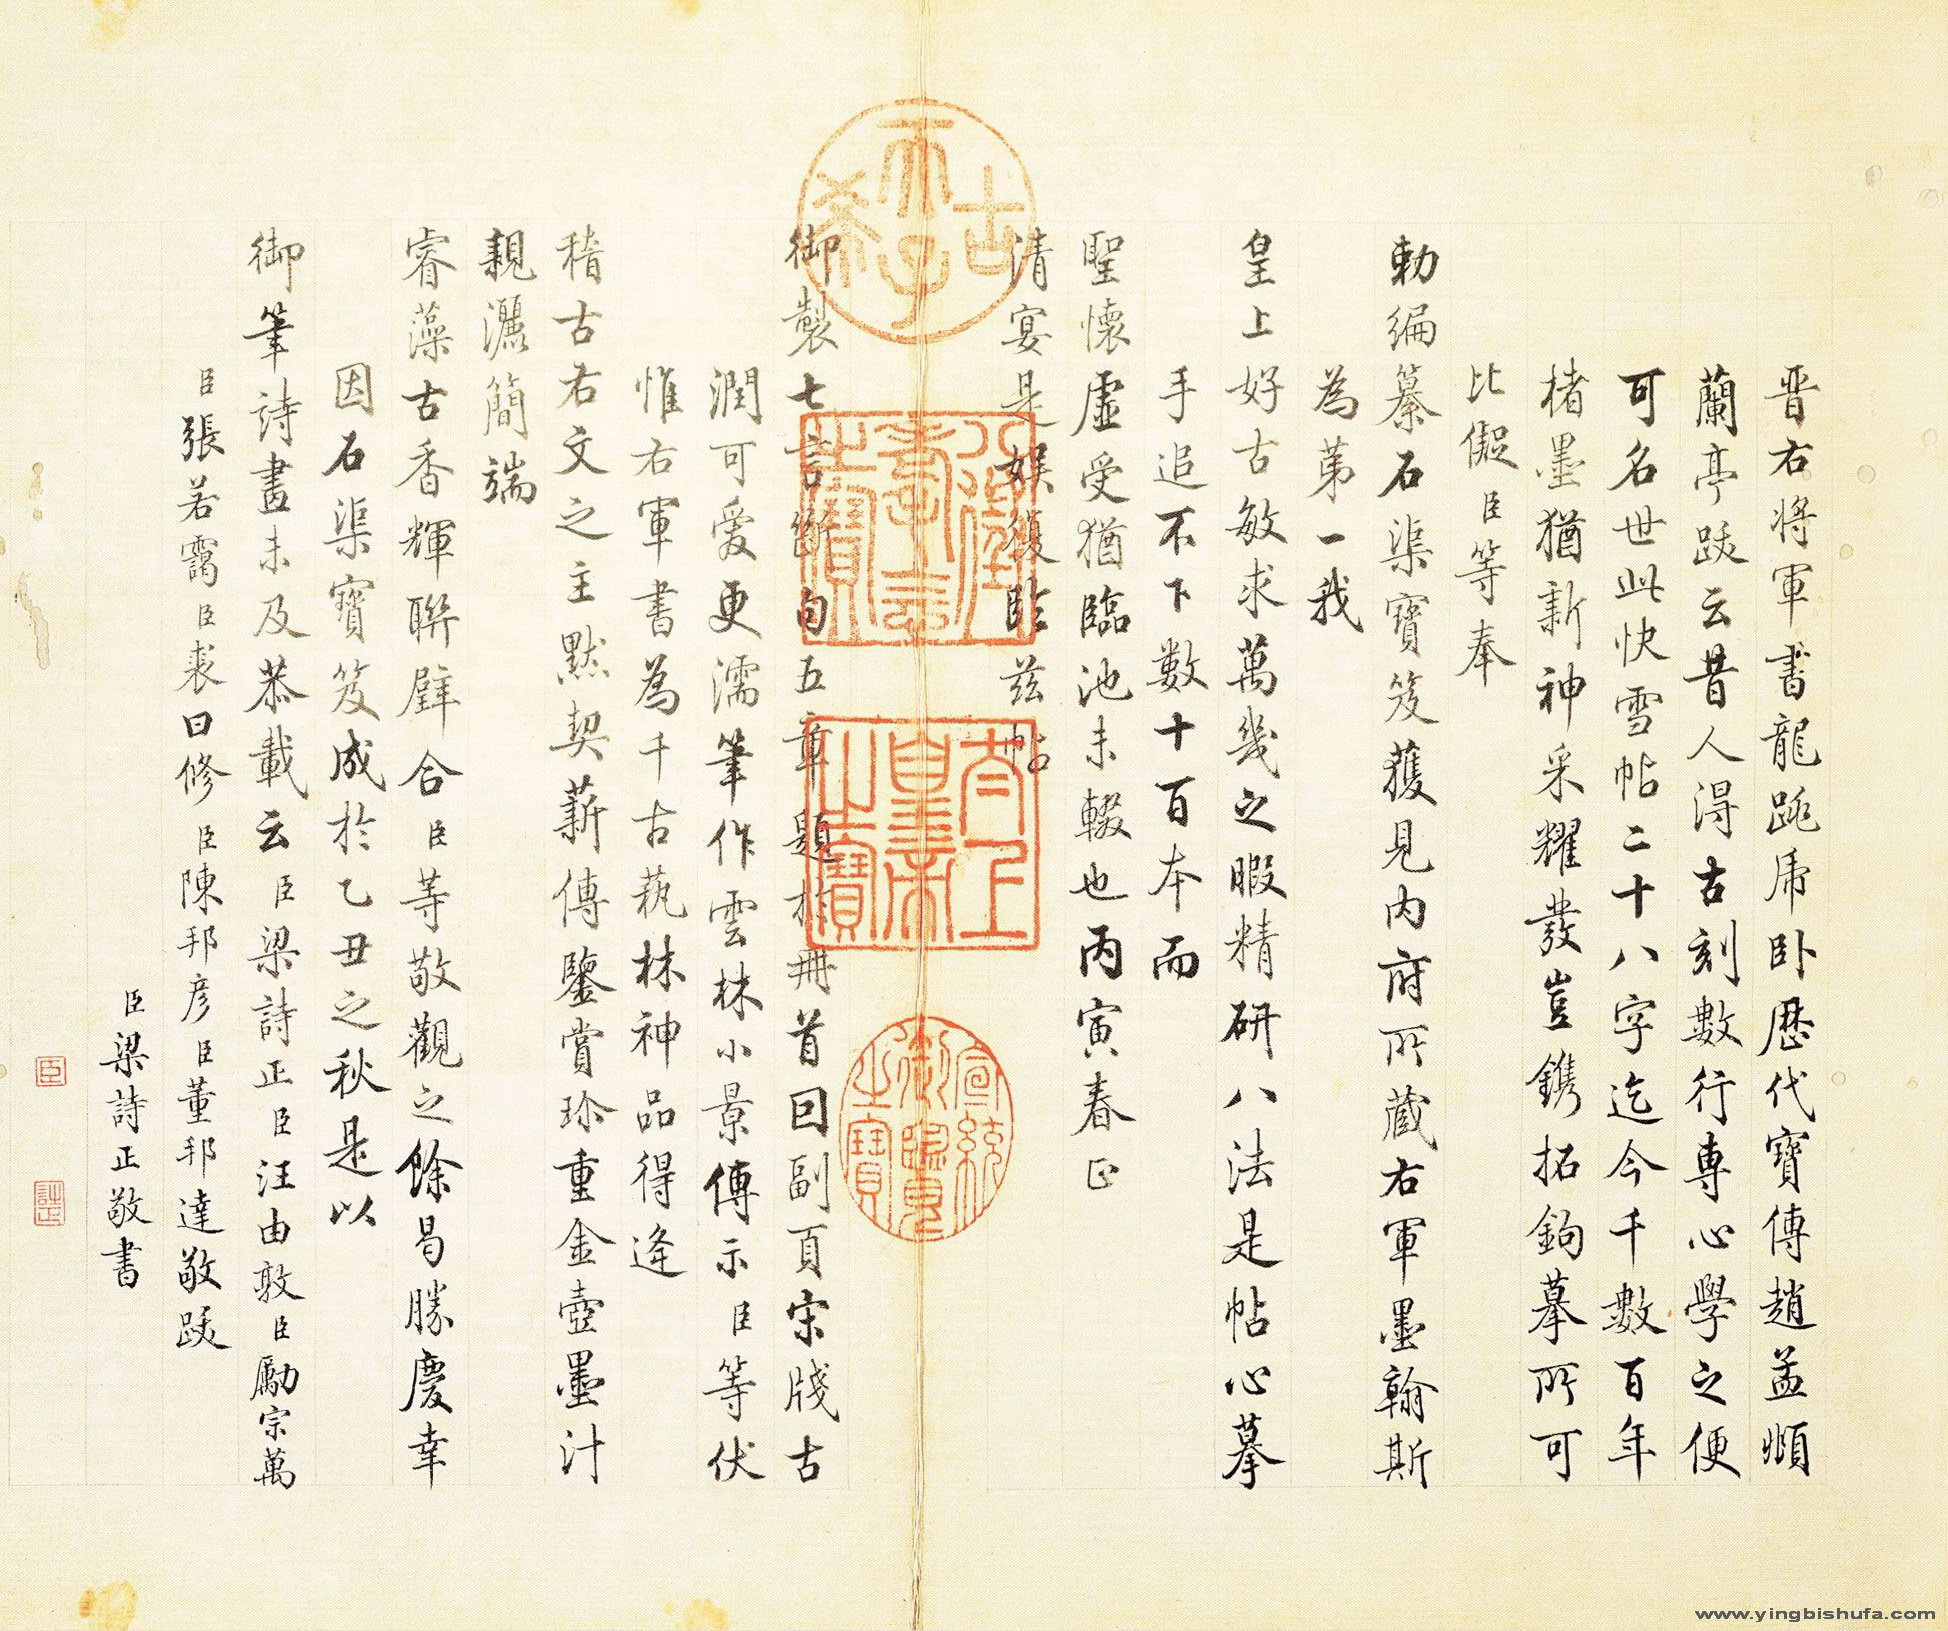 晋右將軍書龍跳虎卧歷代寶傳趙孟頫
蘭亭跋云昔人得古刻數行專心學之便
可名世此快雪帖二十八字迄今千數百年
楮墨猶新神采耀發豈鐫拓鉤摹所可
比儗臣等奉
勅編纂石渠寶笈獲見内府所蔵右軍墨翰斯
為苐一我
皇上好古敏求萬幾之暇精研八法是帖心摹
手追不下數十百本而
聖懷虛受猶臨池未輟也丙寅春正
清宴是娱復臨兹帖
御製七言斷句五章題於冊首曰副頁宋牋古
潤可愛更濡筆作雲林小景傳示臣等伏
惟右軍書為千古萟林神品得逢
稽古右文之主默契薪傳鑒賞珍重金壺墨汁
親灑簡端
睿藻古香輝聯璧合臣等敬觀之餘曷勝慶幸
因石渠寶笈成於乙丑之秋是以
御筆詩畫未及恭載云臣梁詩正臣汪由敦臣勵宗萬
臣張若靄臣裘曰修臣陳邦彦臣董邦達敬跋
臣梁詩正敬書
古希天子
八徵耄念之寶
太上皇帝之寶
宣統御覽之寶
臣
詩正
www.yingbishufa.com